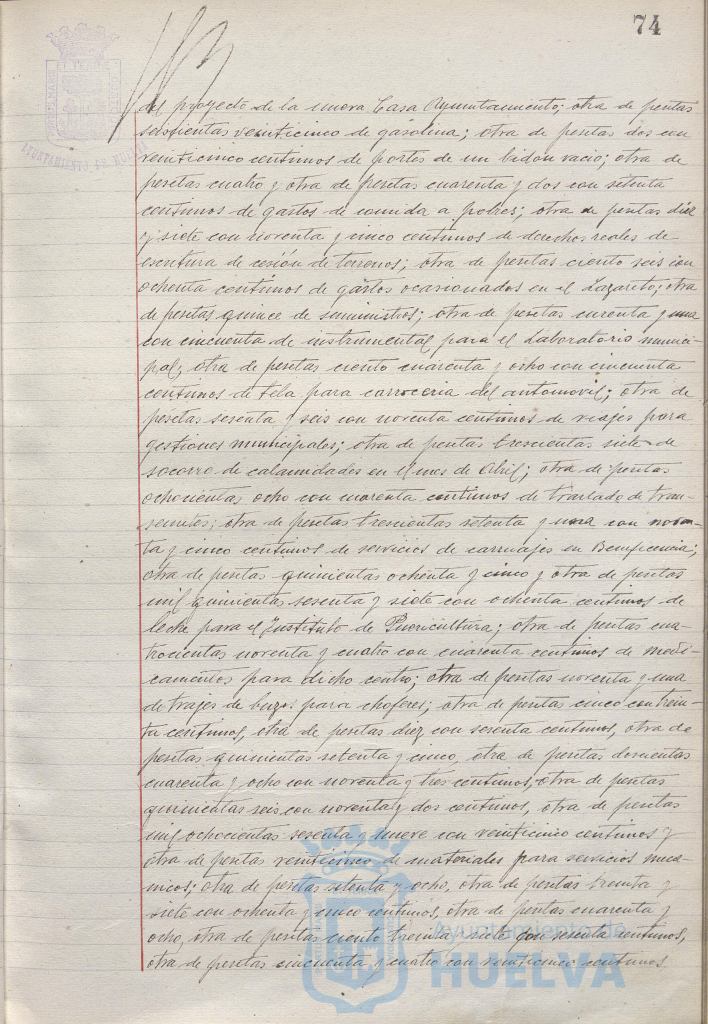 74
del proyecto de la nueva Casa Ayuntamiento; otra de pesetas
seiscientas veinticinco de gasolina; otra de pesetas dos con
veinticinco centimos de portes de un bidon vacio; otra de
pesetas cuatro y otra de pesetas cuarenta y dos con setenta
centimos de gastos de comida a pobres; otra de pesetas diez
y siete con noventa y cinco centimos de derechos reales de
escritura de cesión de terrenos; otra de pesetas ciento seis con
ochenta centimos de gastos ocasionados en el Lazareto; otra
de pesetas quince de suministros; otra de pesetas curenta y una
con cincuenta de instrumental para el Laboratorio munici-
pal; otra de pesetas ciento cuarenta y ocho con cincuenta
centimos de tela para carroceria del automovil; otra de
pesetas sesenta y seis con noventa centimos de viajes para
gestiones municipales; otra de pesetas trescientas siete de
socorro de calamidades en el mes de Abril; otra de pesetas
ochocientas ocho con cuarenta centimos de traslado de tran-
seuntes; otra de pesetas trescientas setenta y una con noven-
ta y cinco centimos de servicios de carruajes en Beneficencia;
otra de pesetas quinientas ochenta y cinco y otra de pesetas
mil quinientas sesenta y siete con ochenta centimos de
leche para el Instituto de Puericultura; otra de pesetas cua-
trocientas noventa y cuatro con cuarenta centimos de medi-
camentos para dicho centro; otra de pesetas noventa y una
de trajes de buzos para choferes; otra de pesetas cinco con trein-
ta centimos, otra de pesetas diez con sesenta centimos, otra de
pesetas quinientas setenta y cinco, otra de pesetas doscientas
cuarenta y ocho con noventa y tres centimos, otra de pesetas
quinientas seis con noventa y dos centimos, otra de pesetas
mil ochocientas sesenta y nueve con veinticinco centimos y
otra de pesetas veinticinco de materiales para servicios mecá-
nicos; otra de pesetas setenta y ocho, otra de pesetas treinta y
siete con ochenta y cinco centimos, otra de pesetas cuarenta y
ocho, otra de pesetas ciento treinta y siete con sesenta centimos,
otra de pesetas cincuenta y cuatro con veinticinco centimos
AYUNTAMIENTO DE HUELVA
Ayuntamiento de
HUELVA